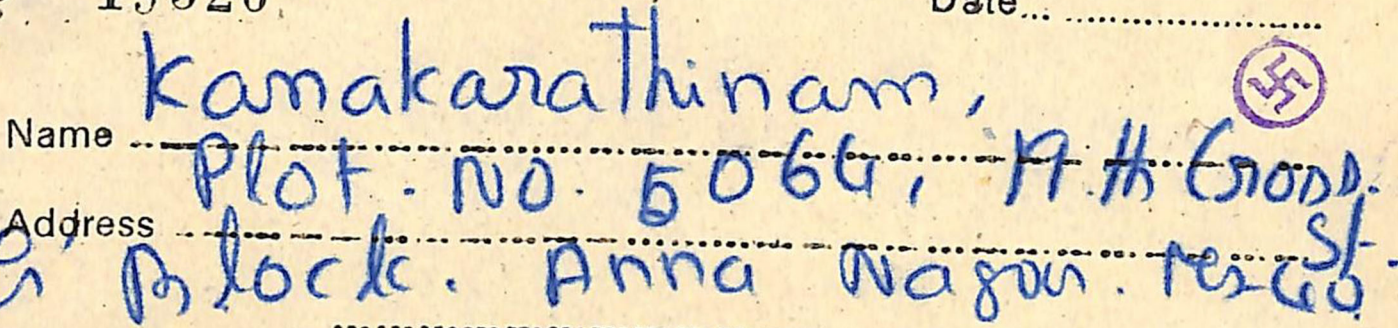 Date
Kanakarathinam,
Name
Plot. No. 5064, Cross.
Address St.
Block. Anna Nagar.